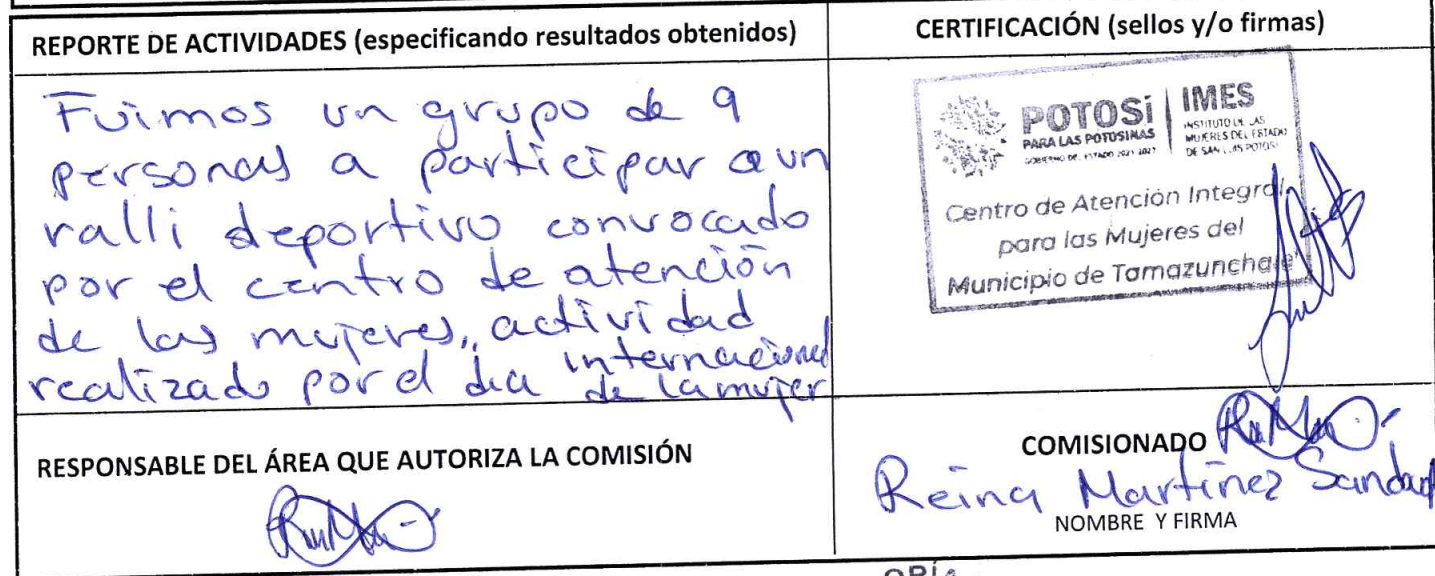 REPORTE DE ACTIVIDADES (especificando resultados obtenidos)
Fuimos un grupo de 9
personas a participar a un
ralli deportivo convocado
por el centro de atención
de las mujeres, actividad
realizado por el dia internacional
de la mujer
CERTIFICACIÓN (sellos y/o firmas)
POTOSÍ
PARA LAS POTOSINAS
GOBIERNO DEL ESTADO 2021-2027
IMES
INSTITUTO DE LAS
MUJERES DEL ESTADO
DE SAN LUIS POTOSÍ
Centro de Atención Integral
para las Mujeres del
Municipio de Tamazunchale
RESPONSABLE DEL ÁREA QUE AUTORIZA LA COMISIÓN
COMISIONADO
Reina Martínez
NOMBRE Y FIRMA